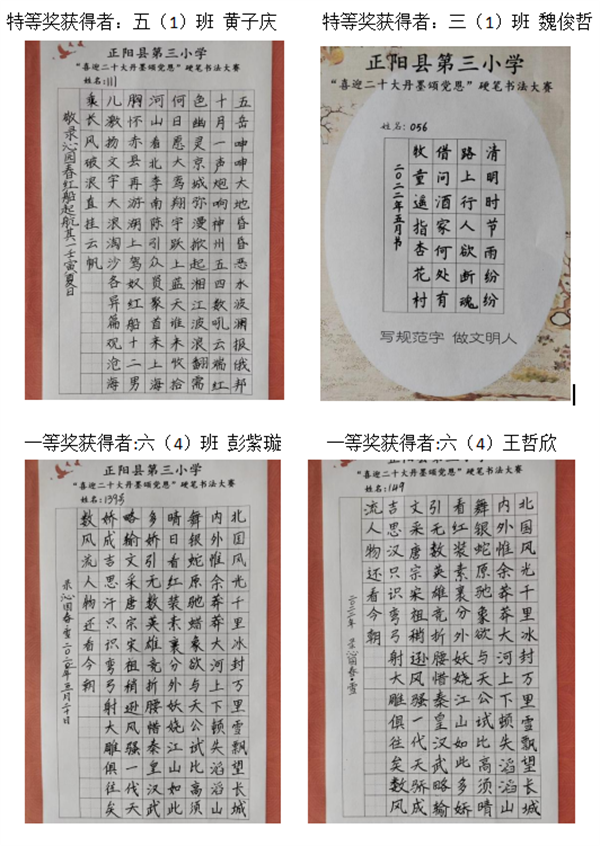 特等奖获得者：五（1）班 黄子庆
特等奖获得者：三（1）班 魏俊哲
正阳县第三小学
“喜迎二十大丹墨颂党恩”硬笔书法大赛
姓名：111
五岳呻呻大地昏昏恶水波澜报俄邦
十月一声炮响神州五四数吼云端红
色幽灵京城弥漫掀起湘江波浪翻需
何日愿大鸾翔宇跃上蓝天谁未收拾
河山看北李南陈引众贠聚首来上海
胸怀赤县再游湖上驾奴红船十二男
儿激扬文字大浪淘沙各异篇观沧海
乘长风破浪直挂云帆
敬录沁园春红船起航其一壬寅夏日
正阳县第三小学
“喜迎二十大丹墨颂党恩”硬笔书法大赛
姓名：056
清明时节雨纷纷
路上行人欲断魂
借问酒家何处有
牧童遥指杏花村
二〇二二年五月书
写规范字 做文明人
一等奖获得者:六（4）班 彭紫璇
一等奖获得者:六（4）王哲欣
正阳县第三小学
“喜迎二十大丹墨颂党恩”硬笔书法大赛
姓名：1395
北国风光千里冰封万里雪飘望长城
内外惟余莽莽大河上下顿失滔滔山
舞银蛇原驰蜡象欲与天公试比高须
晴日看红装素裹分外妖娆江山如此
多娇引无数英雄竞折腰惜秦皇汉武
略输文采唐宗宋祖稍逊风骚一代天
娇成吉思汗只识弯弓射大雕俱往矣
数风流人物还看今朝
录沁园春·雪二〇二二年五月二十日
正阳县第三小学
“喜迎二十大丹墨颂党恩”硬笔书法大赛
姓名：149
北国风光千里冰封万里雪飘望长城
内外惟余莽莽大河上下顿失滔滔山
舞银蛇原驰象欲与天公试比高须晴
看红装素裹分外妖娆江山如此多娇
引无数英雄竞折腰惜秦皇汉武略输
文采唐宗宋祖稍逊风骚一代天骄成
吉思汉只识弯弓射大雕俱往矣数风
流人物还看今朝
二〇二二年 录沁园春·雪